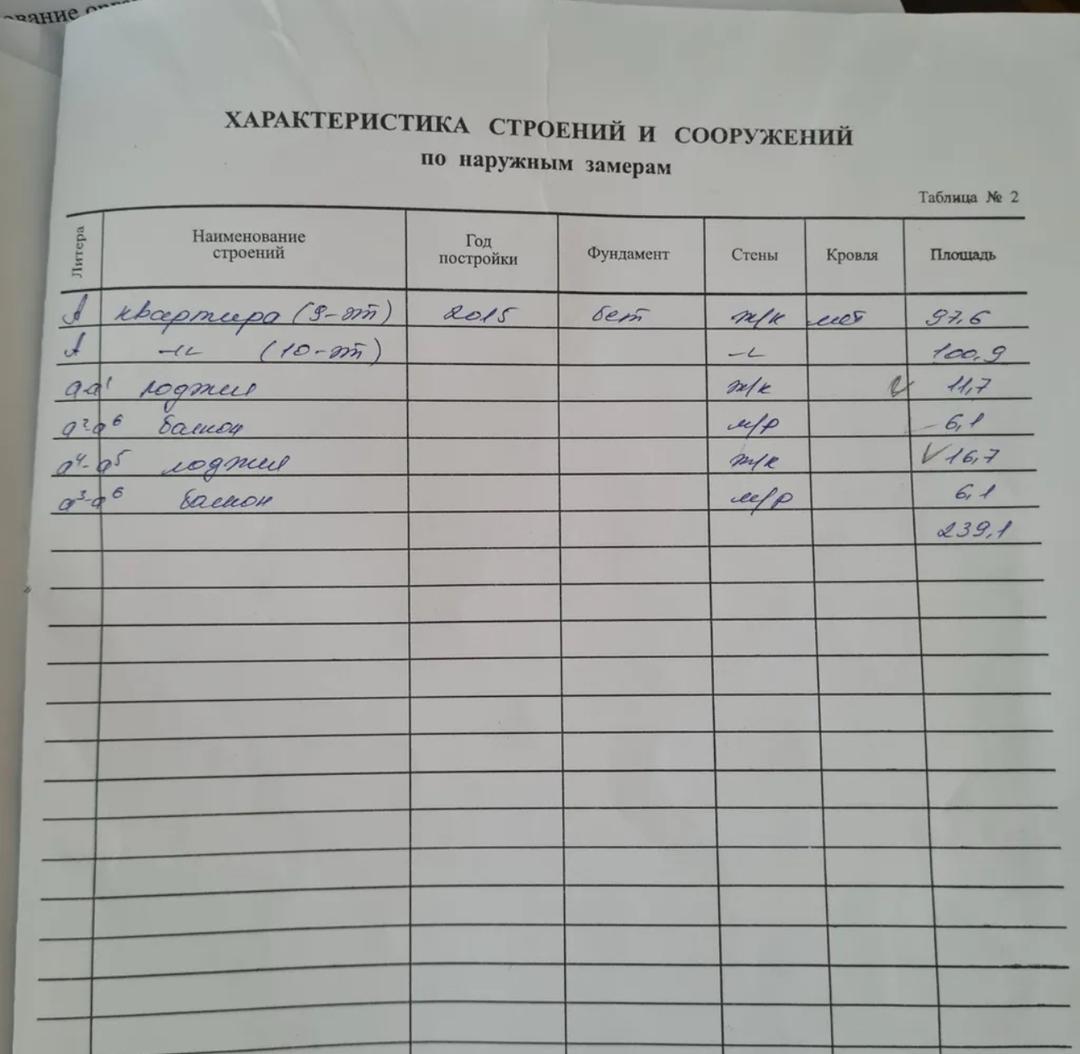 ование
ХАРАКТЕРИСТИКА СТРОЕНИЙ И СООРУЖЕНИЙ
по наружным замерам
Таблица № 2
Литера Наименование строений Год постройки Фундамент Стены Кровля Площадь
А квартира (9-эт) 2015 бет ж/к мет 97,6
А -"- (10-эт) -"- 100,9
а а¹ лоджия ж/к 11,7
а²-а⁶ балкон м/р 6,1
а⁴-а⁵ лоджия ж/к 16,7
а³-а⁶ балкон м/р 6,1
239,1